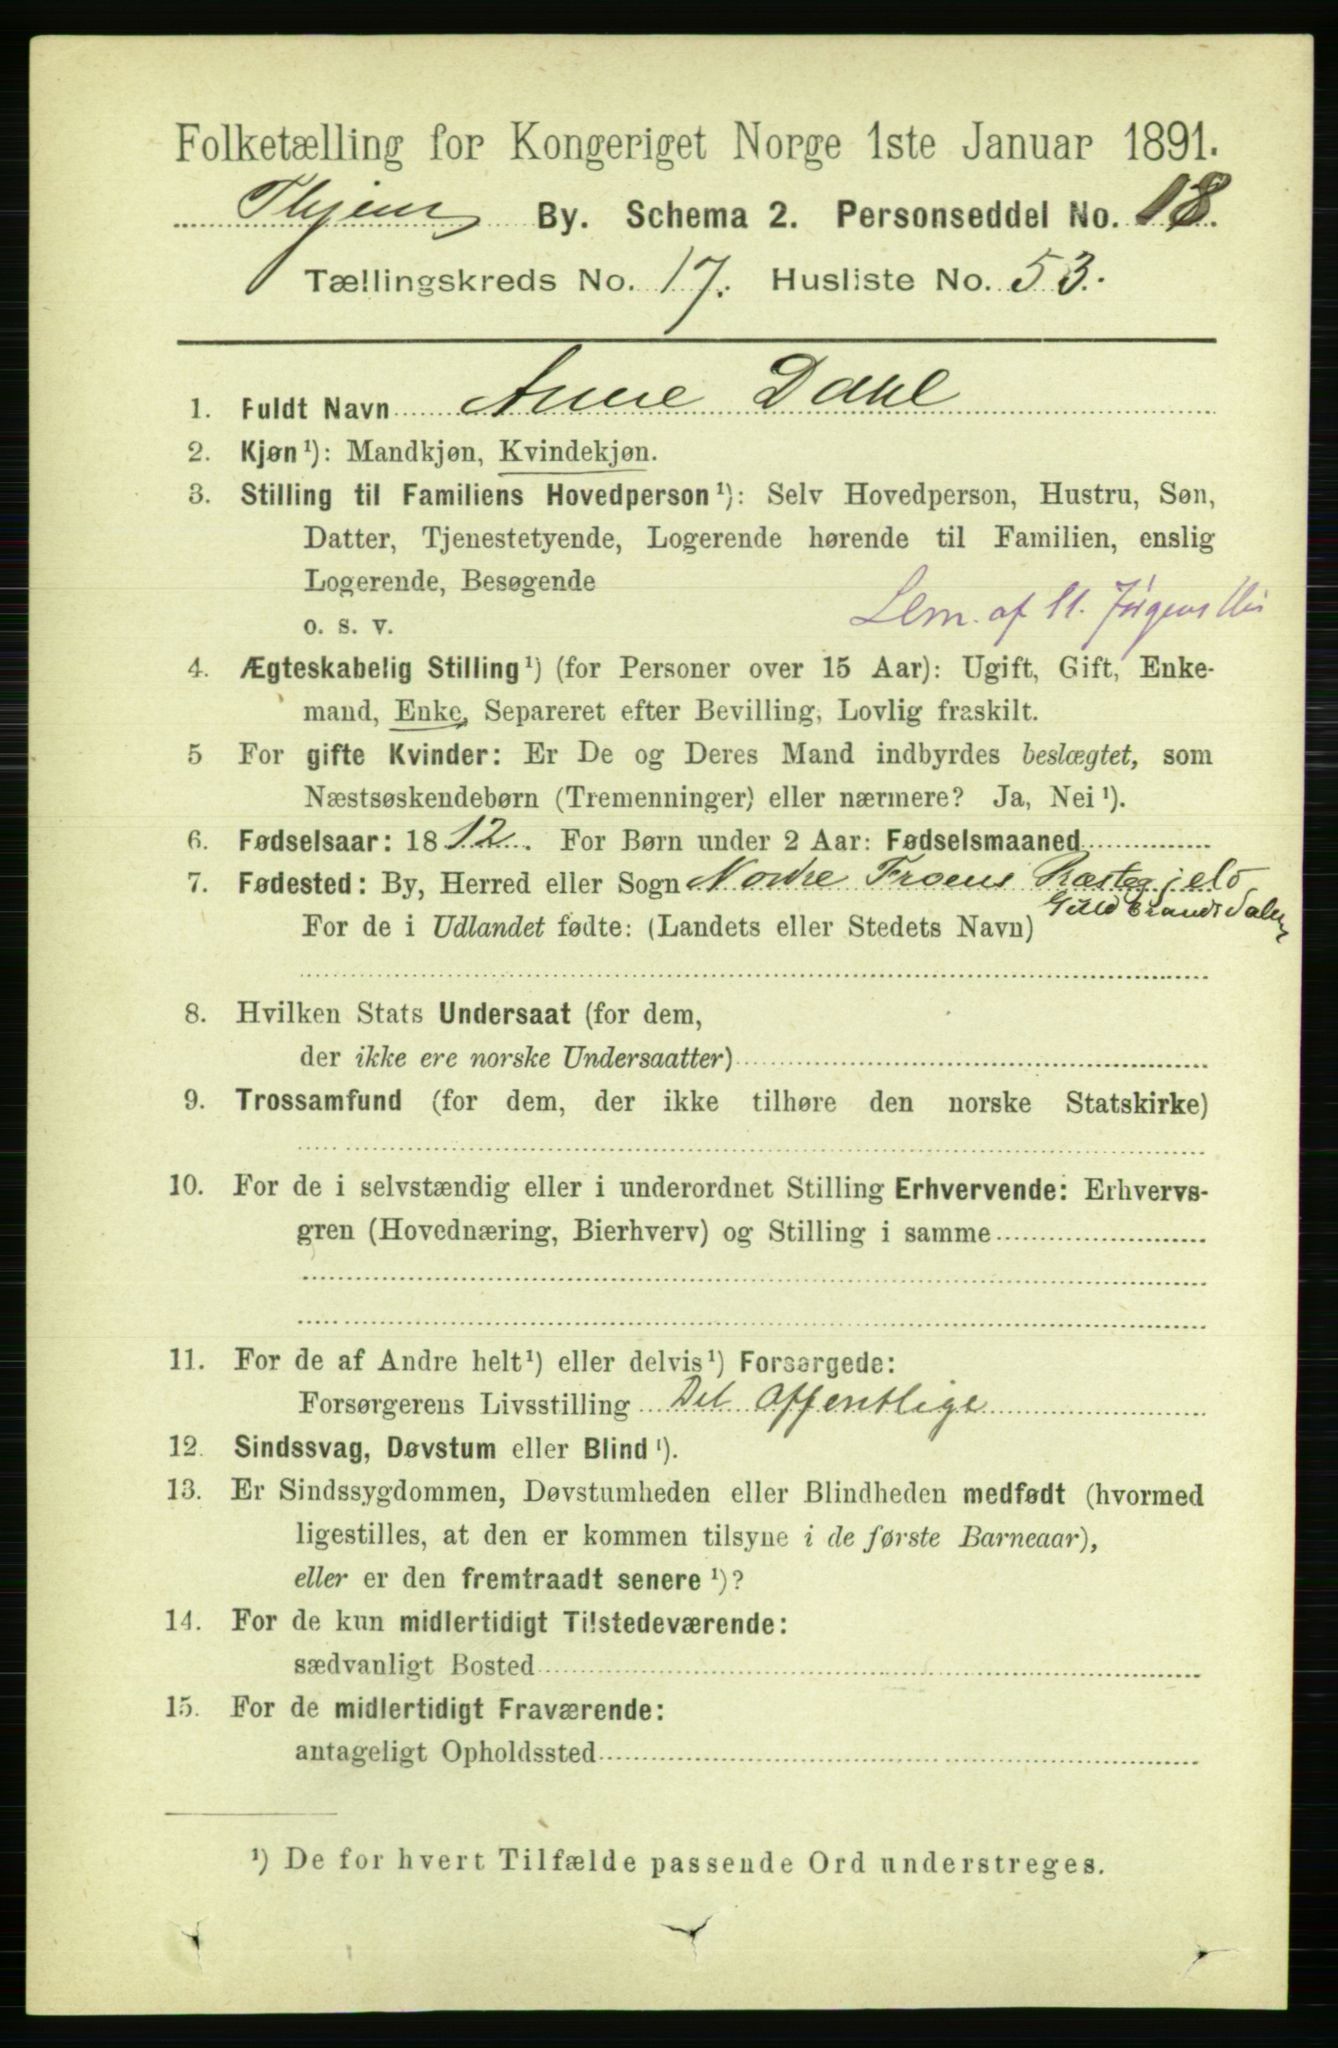 Folketælling for Kongeriget Norge 1ste Januar 1891.
Thjem By. Schema 2. Personseddel No. 18.
Tællingskreds No. 17. Husliste No. 53.
1. Fuldt Navn Anne Dahl
2. Kjøn¹): Mandkjøn, Kvindekjøn.
3. Stilling til Familiens Hovedperson¹): Selv Hovedperson, Hustru, Søn,
Datter, Tjenestetyende, Logerende hørende til Familien, enslig
Logerende, Besøgende
o. s. v. Lem. af St. Jørgens Hus
4. Ægteskabelig Stilling¹) (for Personer over 15 Aar): Ugift, Gift, Enke-
mand, Enke, Separeret efter Bevilling, Lovlig fraskilt.
5 For gifte Kvinder: Er De og Deres Mand indbyrdes beslægtet, som
Næstsøskendebørn (Tremenninger) eller nærmere? Ja, Nei¹).
6. Fødselsaar: 1812. For Børn under 2 Aar: Fødselsmaaned
7. Fødested: By, Herred eller Sogn Nordre Froens Præstegjeld
Guldbrandsdalen
For de i Udlandet fødte: (Landets eller Stedets Navn)
8. Hvilken Stats Undersaat (for dem,
der ikke ere norske Undersaatter)
9. Trossamfund (for dem, der ikke tilhøre den norske Statskirke)
10. For de i selvstændig eller i underordnet Stilling Erhvervende: Erhvervs-
gren (Hovednæring, Bierhverv) og Stilling i samme
11. For de af Andre helt¹) eller delvis¹) Forsørgede:
Forsørgerens Livsstilling Det offentlige
12. Sindssvag, Døvstum eller Blind¹).
13. Er Sindssygdommen, Døvstumheden eller Blindheden medfødt (hvormed
ligestilles, at den er kommen tilsyne i de første Barneaar),
eller er den fremtraadt senere¹)?
14. For de kun midlertidigt Tilstedeværende:
sædvanligt Bosted
15. For de midlertidigt Fraværende:
antageligt Opholdssted
¹) De for hvert Tilfælde passende Ord understreges.